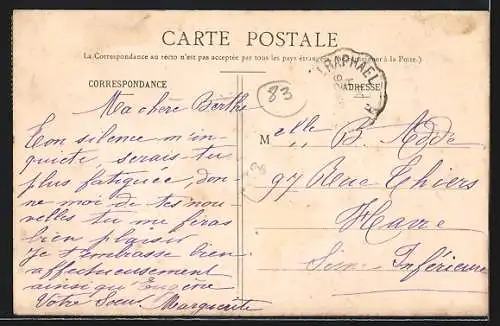 CARTE POSTALE
La Correspondance au recto n'est pas acceptée par tous les pays étrangers à la Poste.)
CORRESPONDANCE
ADRESSE
RAPHAEL
83
Ma chère Berthe
Ton silence m'in
quiète, serais-tu
plus fatiguée, don-
ne moi de tes nou-
velles tu me feras
bien plaisir
Je t'embrasse bien
affectueusement
ainsi qu'Eugène
Votre Sœur Marguerite
Melle B.
97 Rue Thiers
Havre
Seine Inférieure